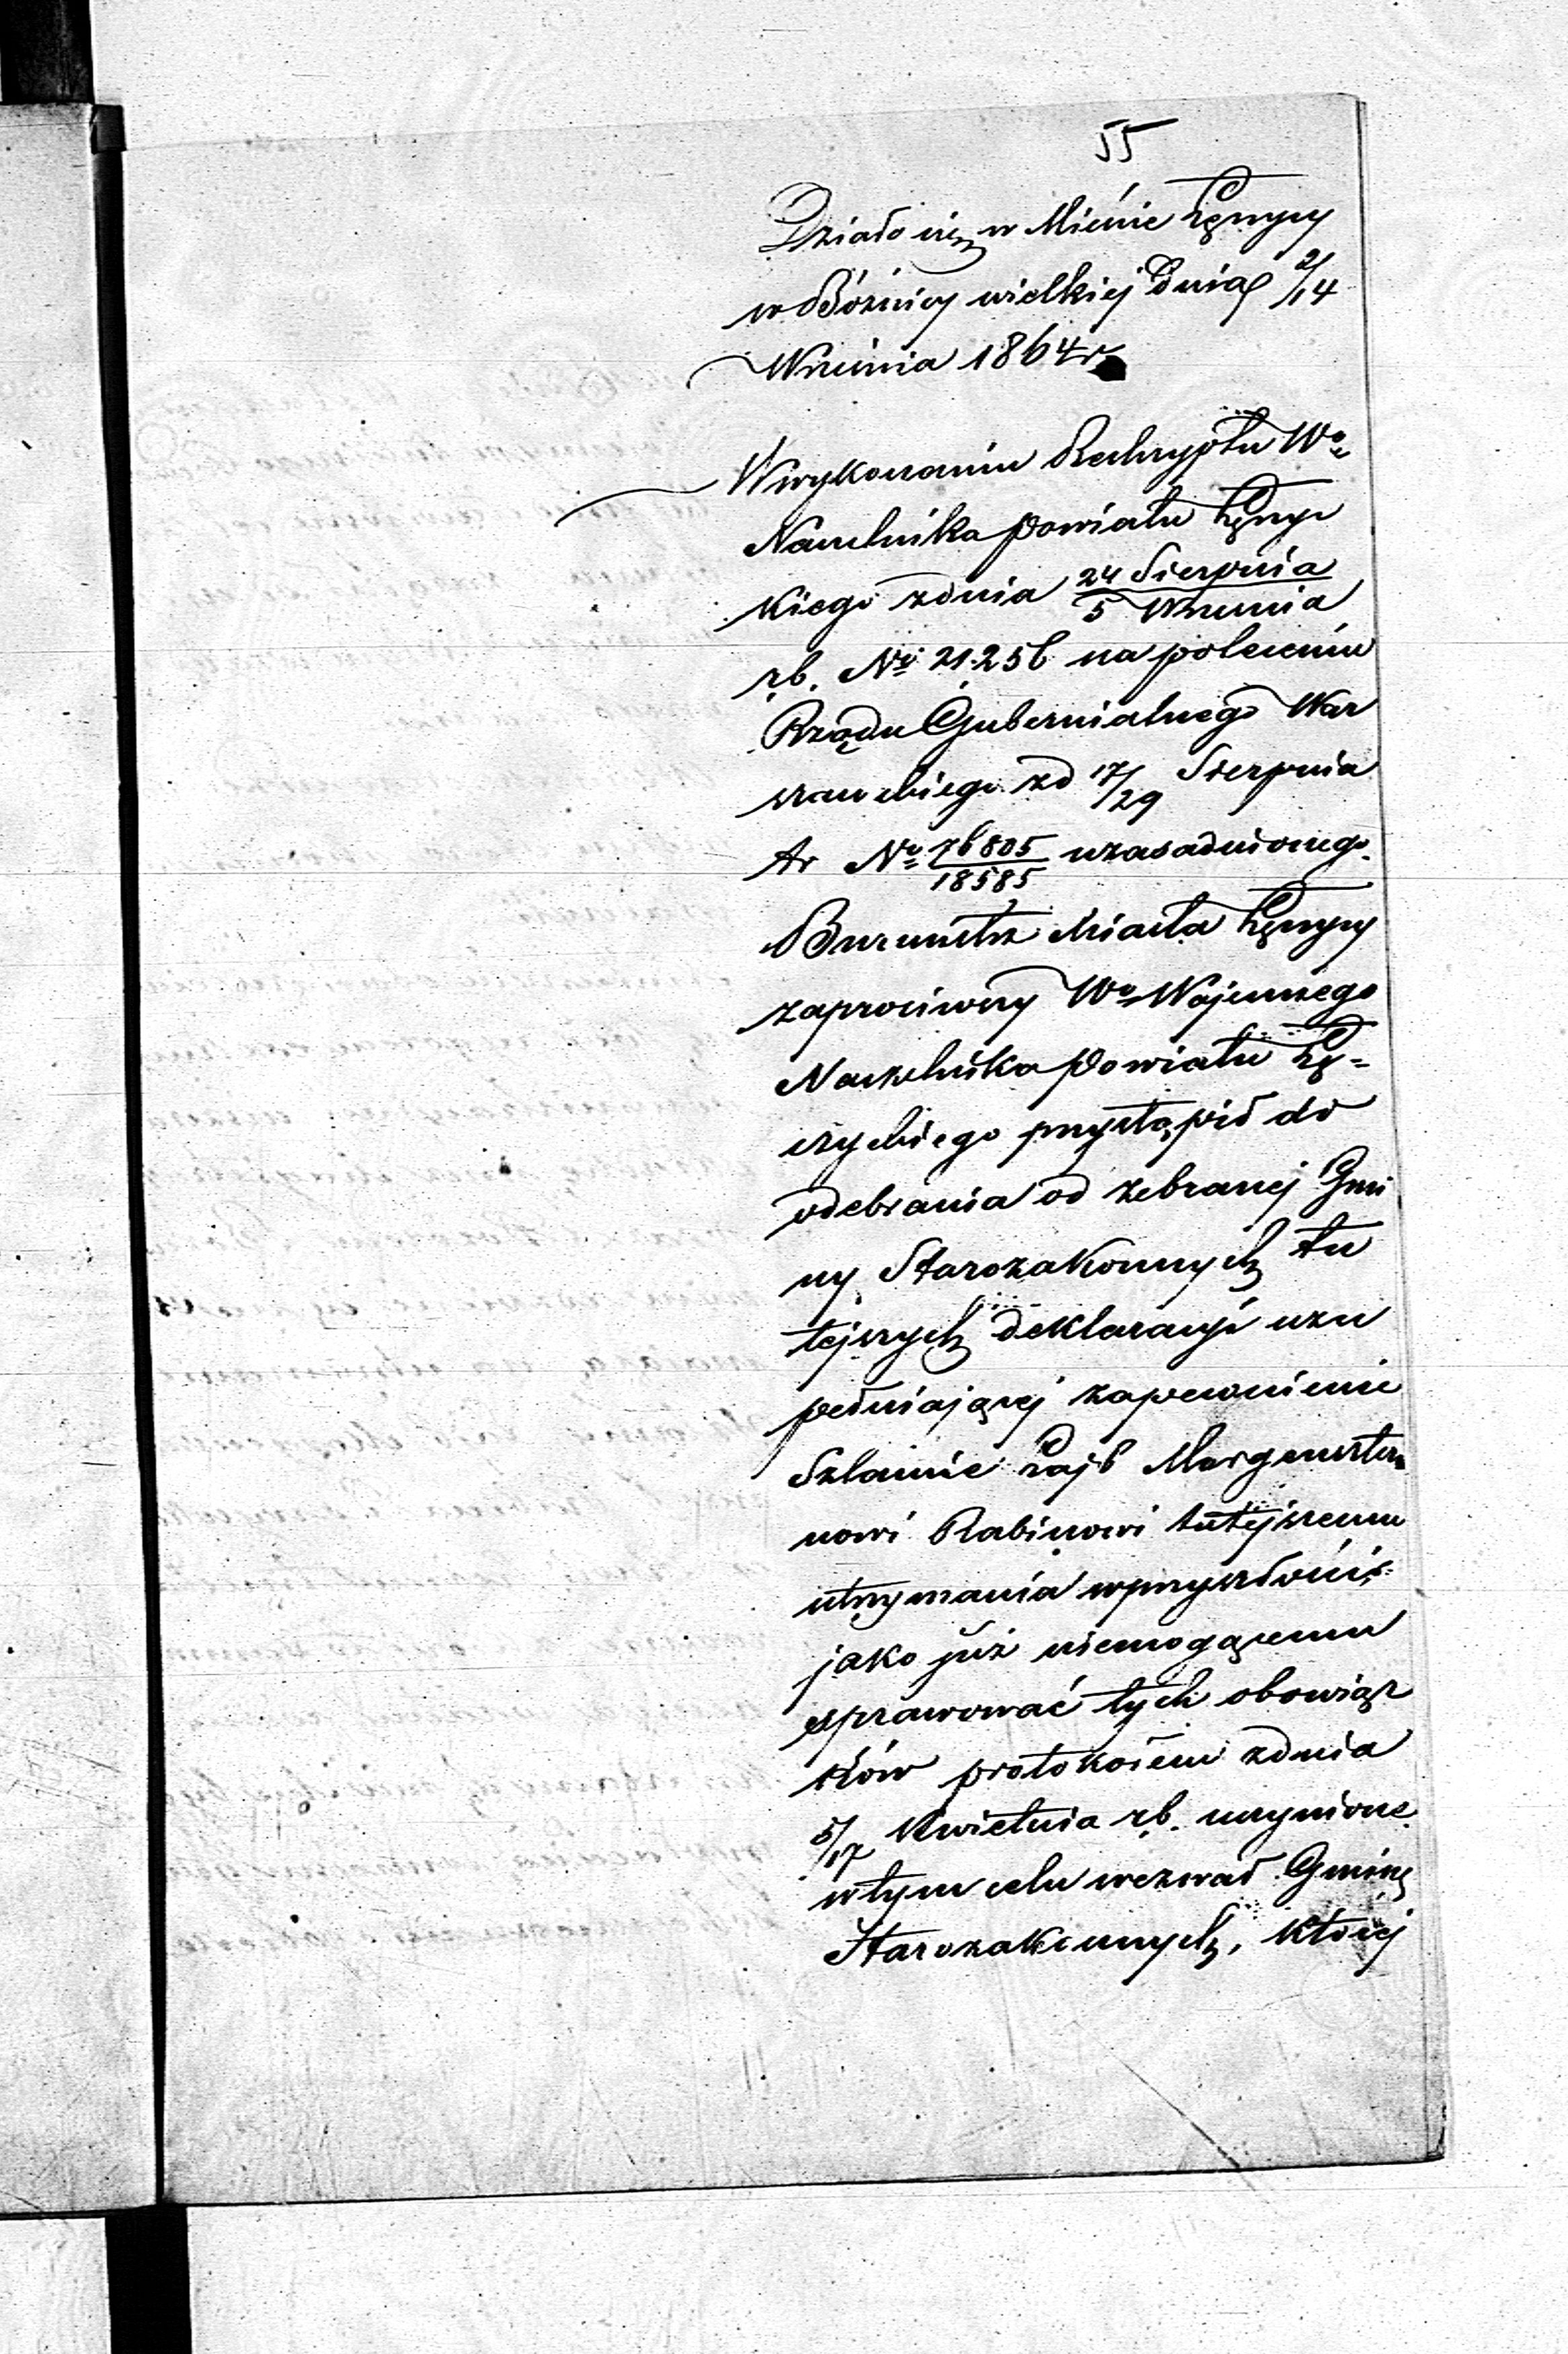 55
Działo się w Mieście Łęczycy
w Bóżnicy wielkiej Dnia 2/14
Września 1864 r
W wykonaniu Reskryptu Wo
Naczelnika Powiatu Łęczyc
kiego z dnia 24 Sierpnia / 5 Września
r.b. No 21.256 na poleceniu
Rządu Gubernialnego War
szawskiego z d 17/29 Sierpnia
tr No 76805/18585 uzasadnionego
Burmistrz Miasta Łęczycy
zaprosiwszy Wo Wojennego
Naczelnika Powiatu Łę=
czyckiego przystąpił do
odebrania od zebranej Gmi
ny Starozakonnych tu
tejszych deklaracyi uzu
pełniającej zapewnienie
Szlamie Lajb Morgenszter
nowi Rabinowi tutejszemu
utrzymania w przyszłości
jako już niemogącemu
sprawować tych obowiąz
ków protokołem z dnia
5/17 Kwietnia r.b. uczynione
w tym celu wezwał Gminę
Starozakonnych, której